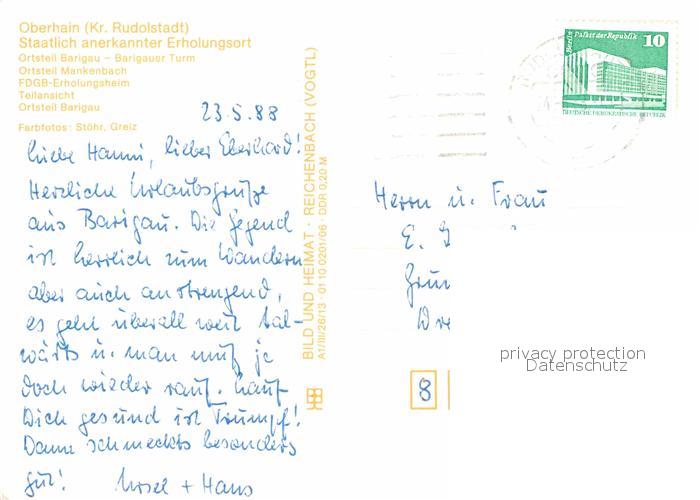 Oberhain (Kr. Rudolstadt)
Staatlich anerkannter Erholungsort
Ortsteil Barigau – Barigauer Turm
Ortsteil Mankenbach
FDGB-Erholungsheim
Teilansicht
Ortsteil Barigau
Farbfotos: Stöhr, Greiz
23.5.88
Liebe Hanni, lieber Eberhard!
Herzliche Urlaubsgrüße
aus Barigau. Die Gegend
ist herrlich zum Wandern
aber auch anstrengend,
es geht überall weit tal-
wärts u. man muß ja
doch wieder rauf. Lauf
Dich gesund ist Trumpf!
Dann schmeckts besonders
gut! Ursel + Hans
BILD UND HEIMAT · REICHENBACH (VOGTL)
A1/III/26/13 01 10 0201/06 · DDR 0,20 M
Berlin Palast der Republik
10
DEUTSCHE DEMOKRATISCHE REPUBLIK
Herrn u. Frau
E. G
Grun
Dre
8
privacy protection
Datenschutz